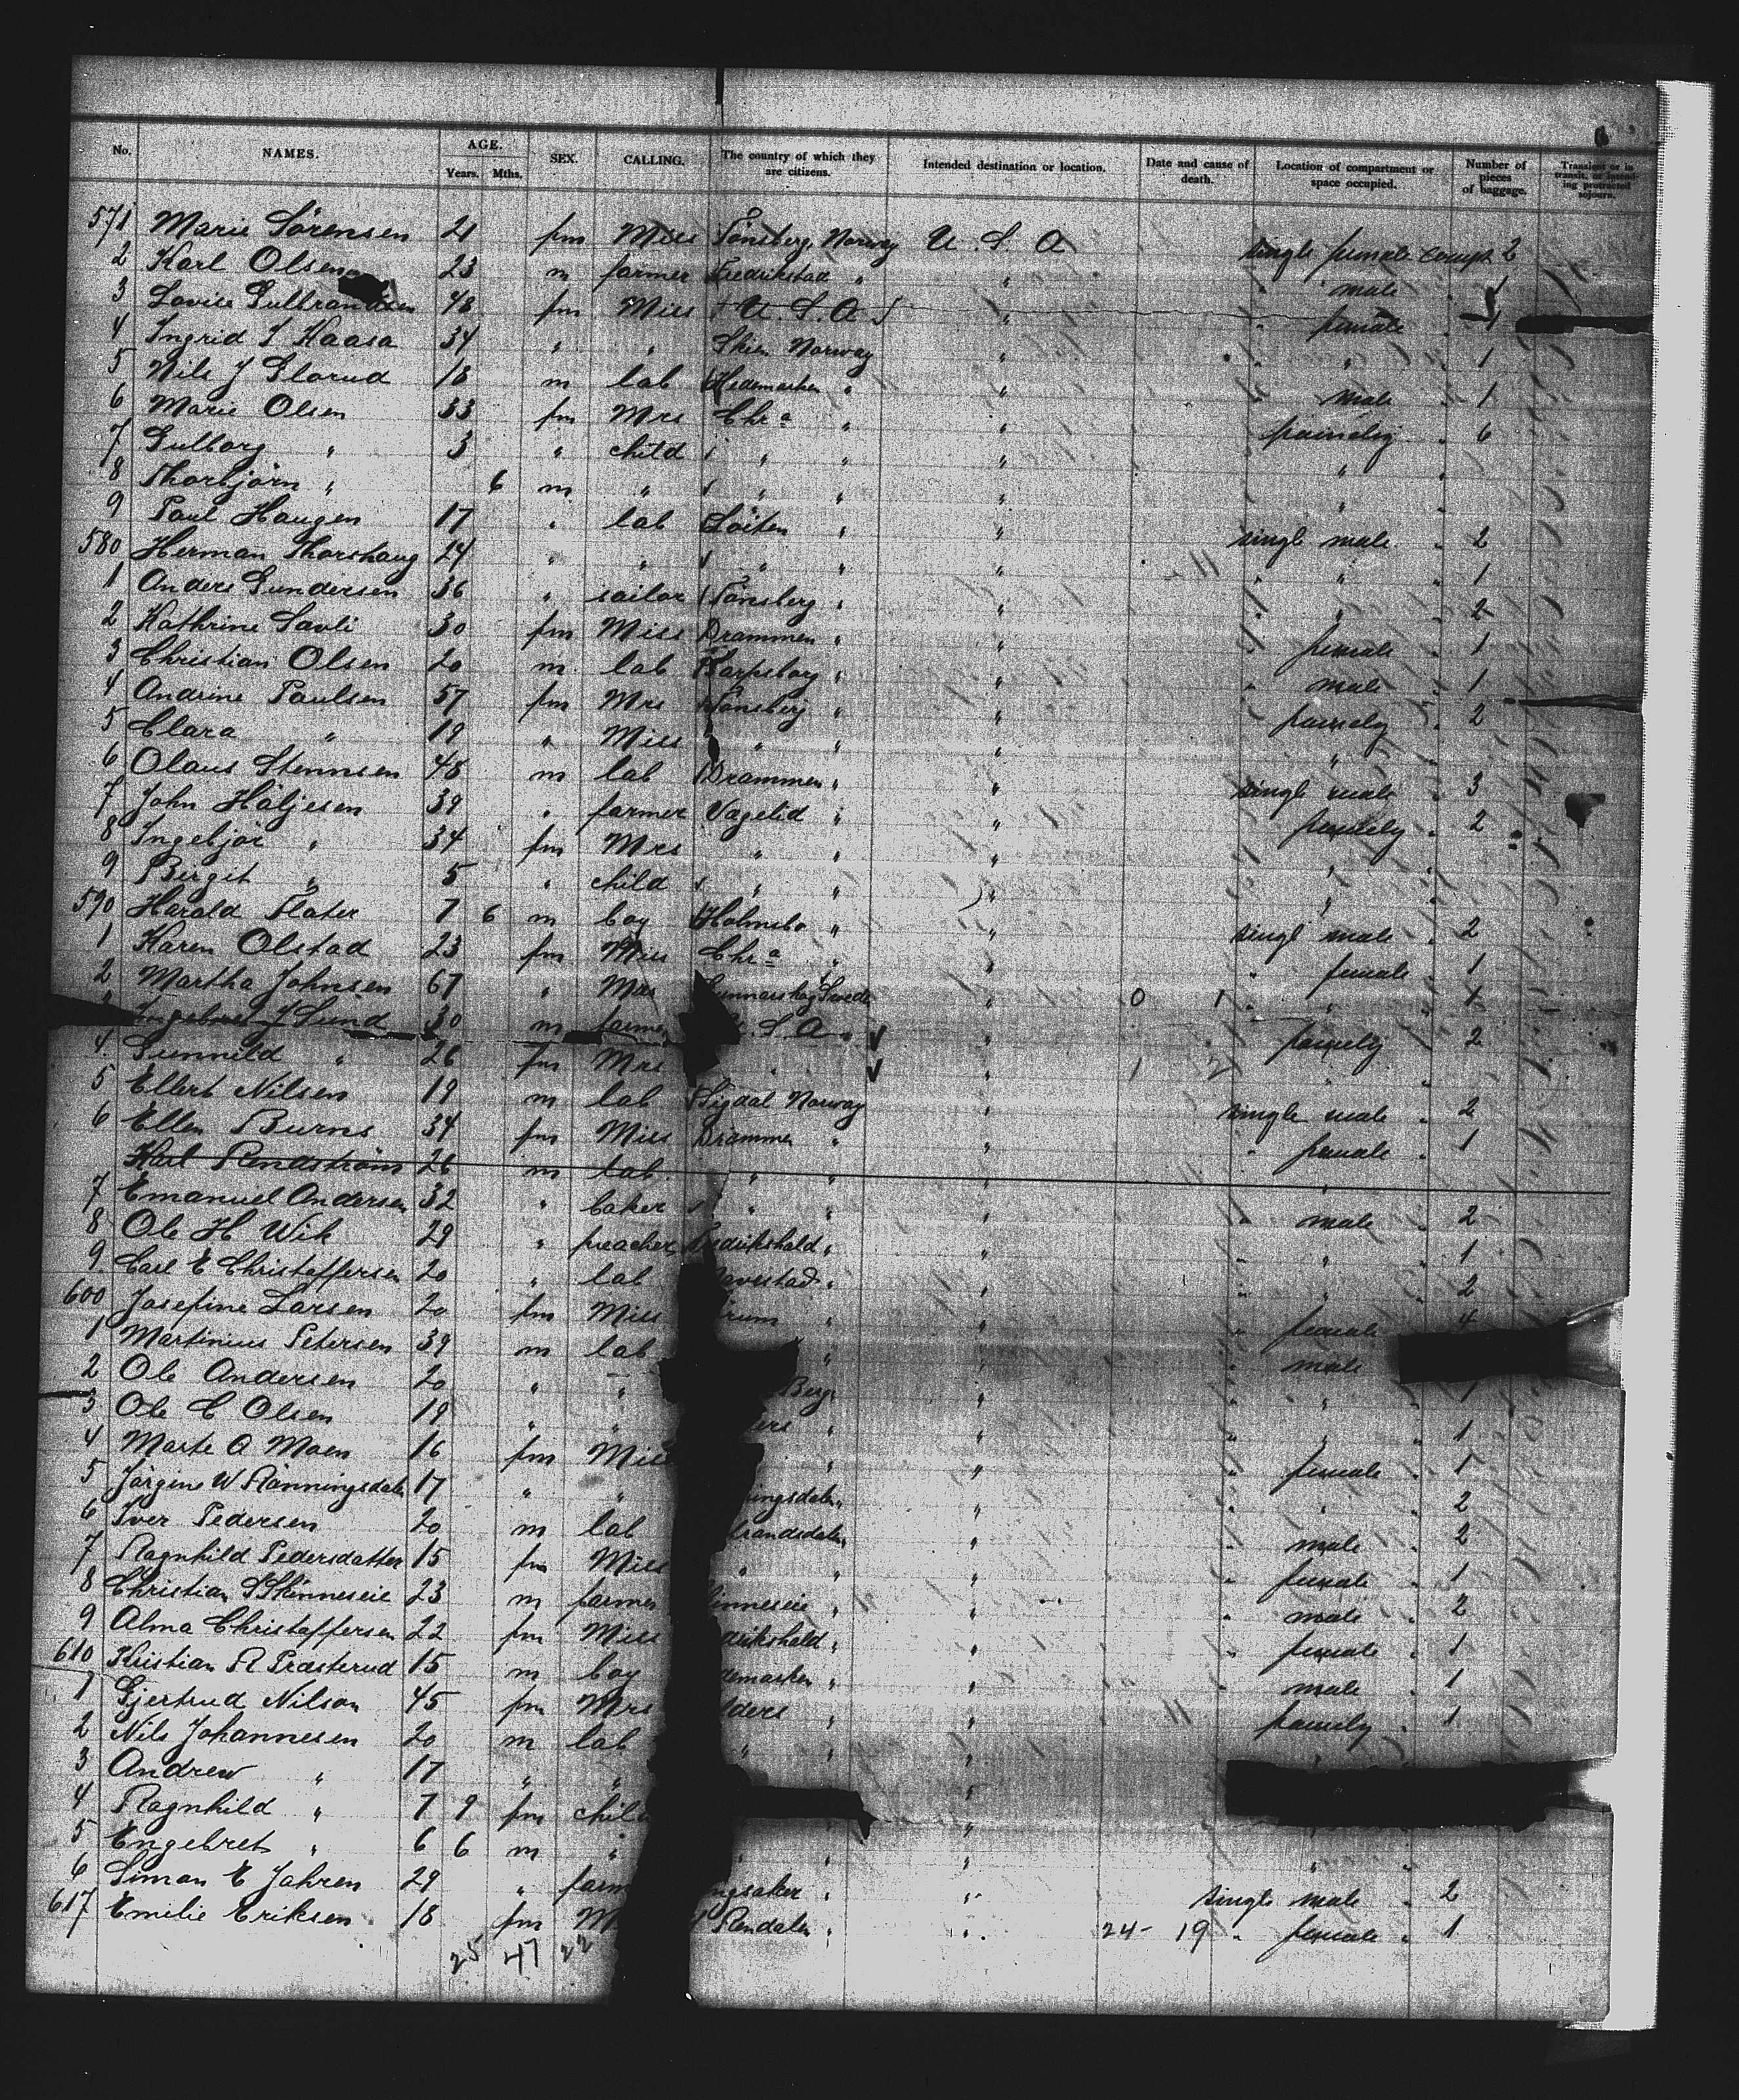 6
No. NAMES. AGE. Years. Mths. SEX. CALLING. The country of which they are citizens. Intended destination or location. Date and cause of death. Location of compartment or space occupied. Number of pieces of baggage. Transient or in transit, or intending protracted sojourn.
571 Marie Sörensen 21 fm Miss Tönsberg, Norway U. S. A single female compt. 2
2 Karl Olsen 23 m farmer Fredrikstad " " " male " 1
3 Lovise Gulbrandsen 48 fm Miss U. S. A " " female " 1
4 Ingrid I Haasa 34 " " Skien Norway " " " 1
5 Nils J Glorud 18 m lab Hedemarken " " " male " 1
6 Marie Olsen 33 fm Mrs Chra " " family " 6
7 Gulborg " 3 " child " " " " "
8 Thorbjörn " 6 m " " " " "
9 Paul Haugen 17 " lab Löiten " " single male " 2
580 Herman Thorshaug 24 " " " " " " " " 1
1 Anders Gundersen 36 " sailor Tönsberg " " " " 2
2 Kathrine Savli 30 fm Miss Drammen " " " female " 1
3 Christian Olsen 20 m lab Sarpsborg " " " male " 1
4 Andrine Paulsen 57 fm Mrs Tönsberg " " family " 2
5 Clara " 19 " Miss " " " " "
6 Olaus Stennsen 48 m lab Drammen " " single male " 3
7 John Höljesen 39 " farmer Vagelid " " family " 2
8 Ingebjör " 34 fm Mrs " " " " "
9 Birgit " 5 " child " " " "
590 Harald Plater 7 6 m boy Holmsbo " " single male " 2
1 Karen Olstad 23 fm Miss Chra " " " female " 1
2 Martha Johnsen 67 " Mrs Gunnarskog Swede " 0 1 " " " 1
J Lund 30 m farmer U. S. A " family " 2
4 Gunnild " 26 fm Mrs " " 1 2 " "
5 Ellert Nilsen 19 m lab Sigdal Norway " single male " 2
6 Ellen Burns 34 fm Miss Drammen " " " female " 1
Karl Rendström 26 m lab " " " "
7 Emanuel Andersen 32 " baker " " " " male " 2
8 Ole H Wik 29 " preacher Fredrikshald " " " " 1
9 Carl E Christoffersen 20 " lab " " " " " 2
600 Josefine Larsen 20 fm Miss " " " female " 4
1 Martinius Petersen 39 m lab " " " male
2 Ole Andersen 20 " " Berg " " " " 1
3 Ole C Olsen 19 " " " " " " " 1
4 Marte O Moen 16 fm Miss " " " female " 1
5 Jörgine W Rönningsdalen 17 " " ingsdalen " " " " 2
6 Iver Pedersen 20 m lab brandsdalen " " " male " 2
7 Ragnhild Pedersdatter 15 fm Miss " " " " female " 1
8 Christian S Skinneseie 23 m farmer inneseie " " " male " 2
9 Alma Christoffersen 22 fm Miss drikshald " " " female " 1
610 Kristian R Præsterud 15 m boy demarken " " " male " 1
1 Gjertrud Nilson 45 fm Mrs lders " " family " 1
2 Nils Johannesen 20 m lab " " "
3 Andrew " 17 " " "
4 Ragnhild " 7 9 fm child " "
5 Engebret " 6 6 m " " " " " "
6 Simon E Jahren 29 " farm ngsaker " " single male " 2
617 Emilie Eriksen 18 fm M Rendalen " " 24- 19 " female " 1
25 47 22